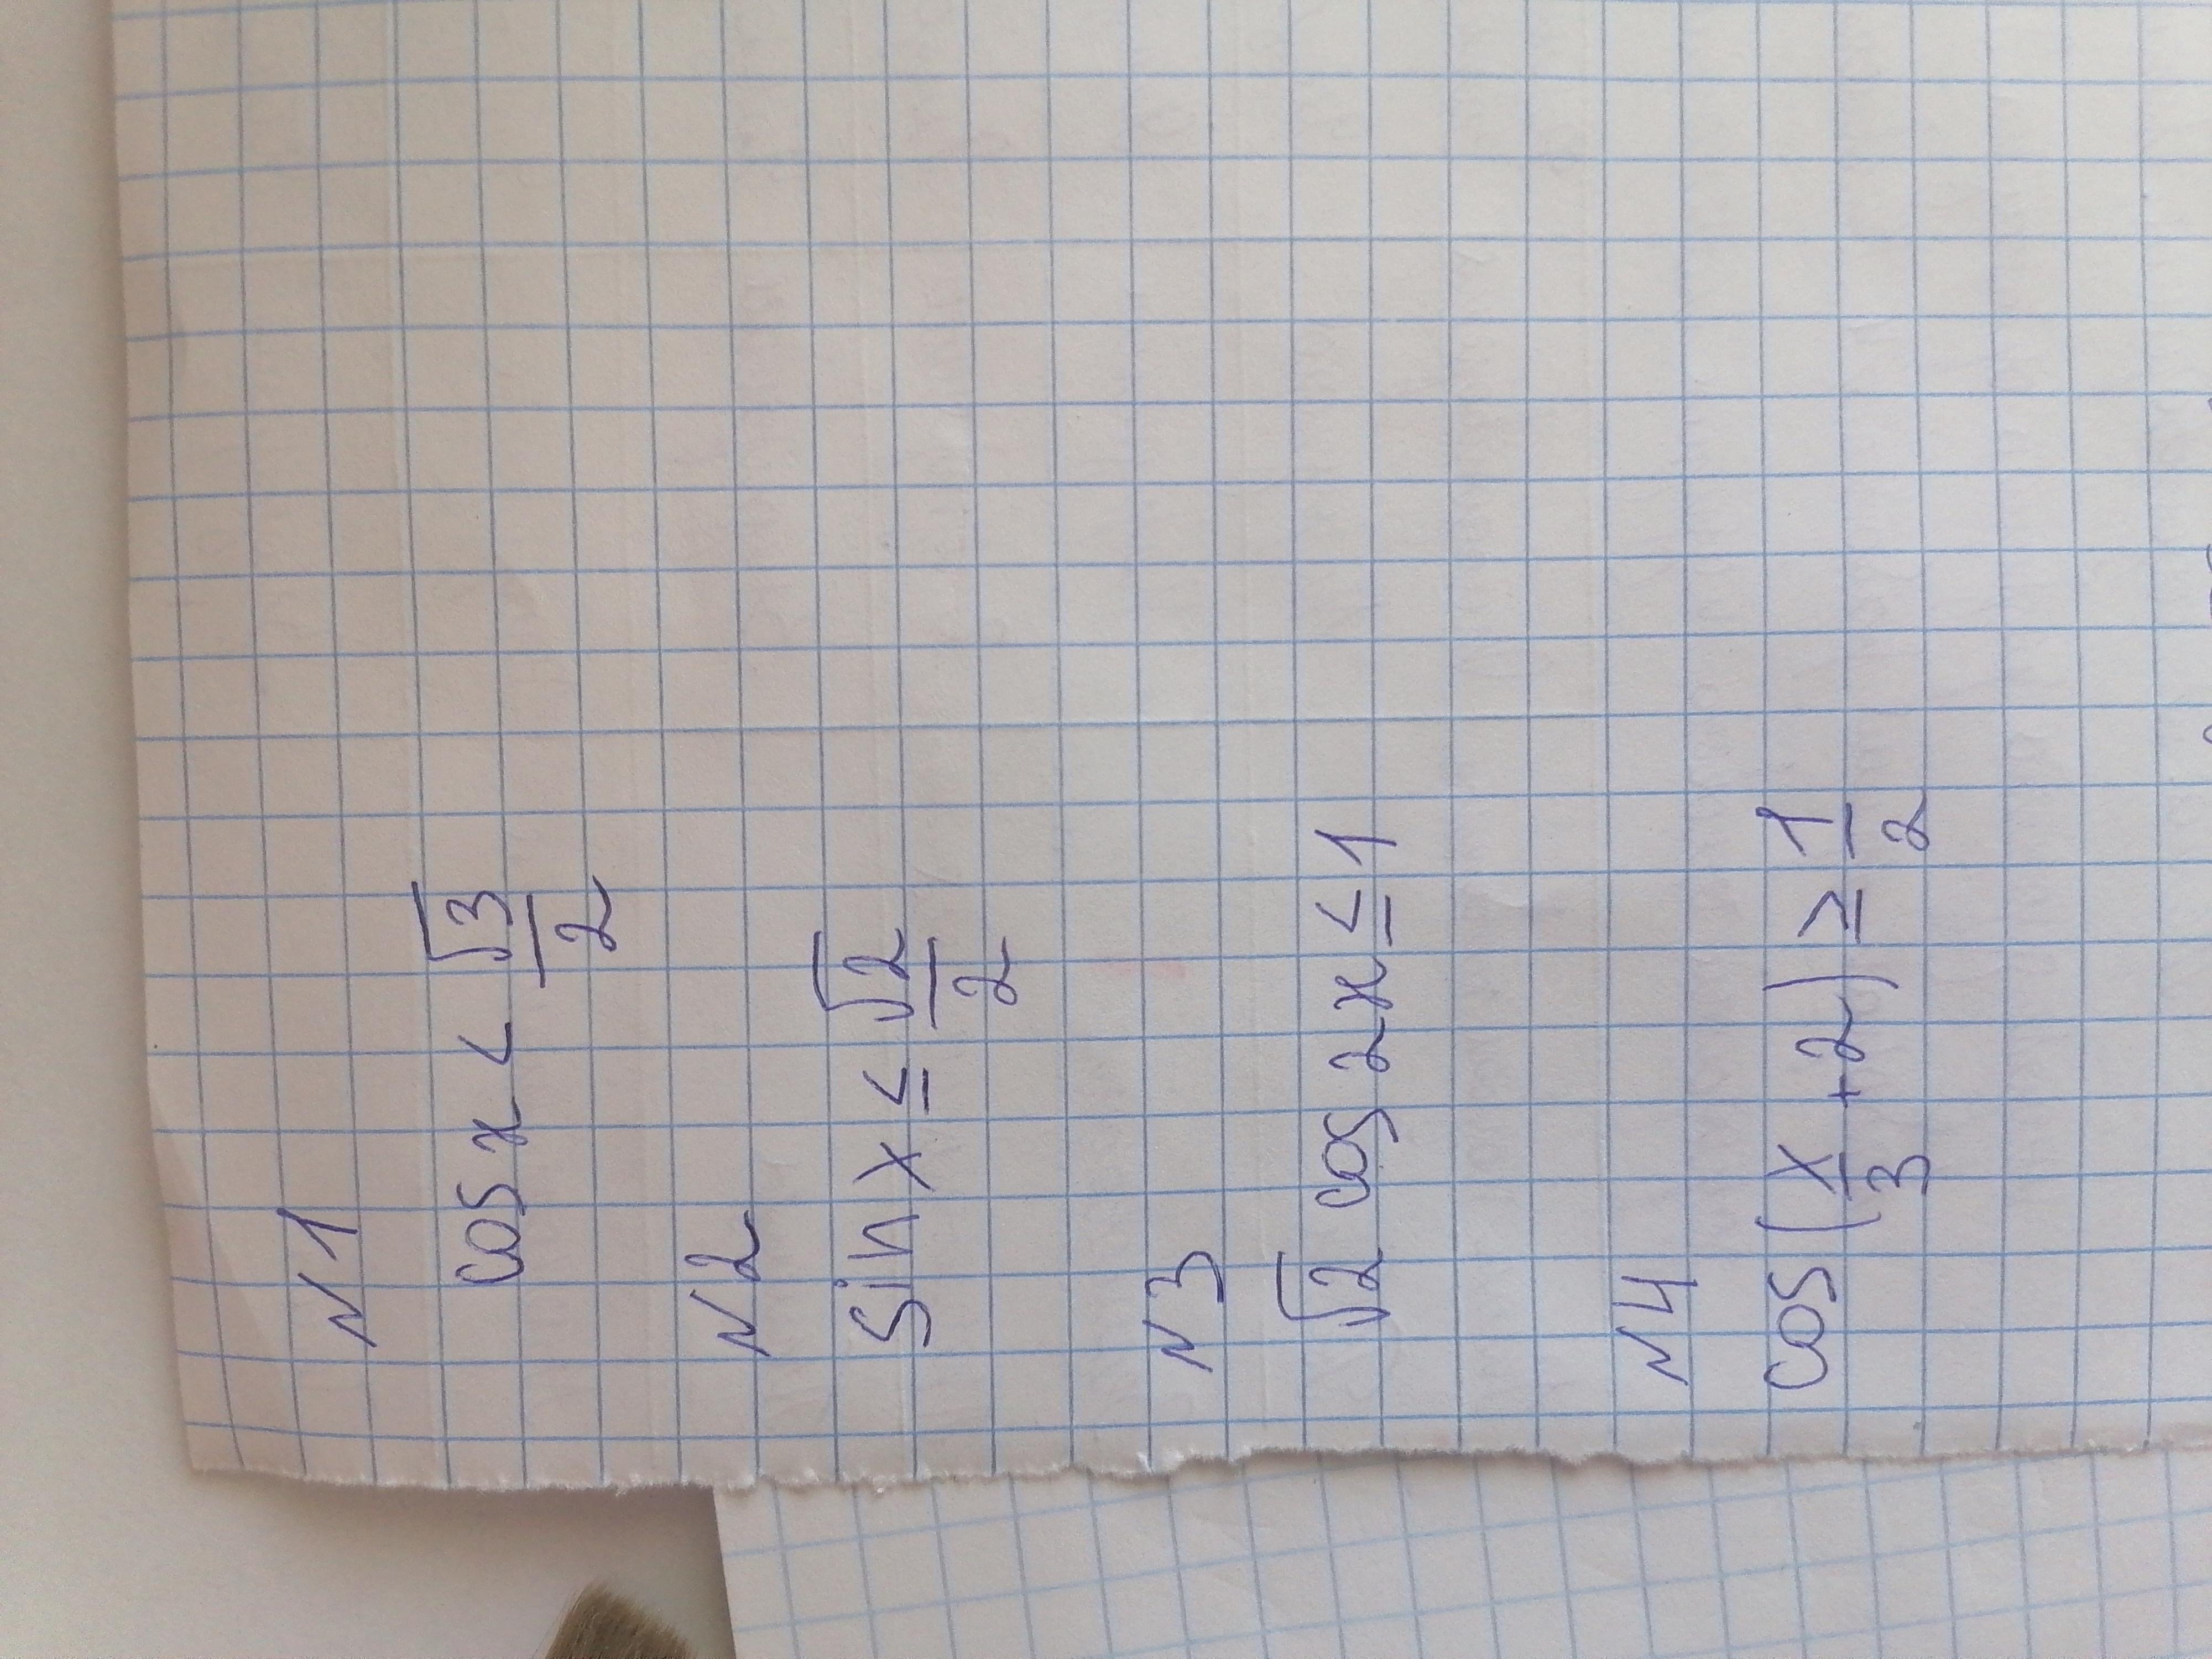 N1
cos x < √3/2
N2
sin x ≤ √2/2
N3
√2 cos 2x ≤ 1
N4
cos(x/3 + 2) ≥ 1/2